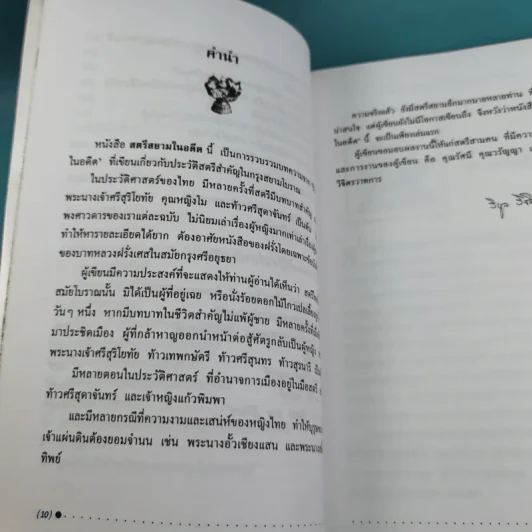 คำนำ
หนังสือ สตรีสยามในอดีต นี้ เป็นการรวบรวมบทความ
ในอดีต" ที่เขียนเกี่ยวกับประวัติสตรีสำคัญในกรุงสยามโบราณ
ในประวัติศาสตร์ของไทย มีหลายครั้งที่สตรีมีบทบาทสำคัญ
พระนางเจ้าศรีสุริโยทัย คุณหญิงโม และท้าวศรีสุดาจันทร์ เป็นต้น
พงศาวดารของเราแต่ละฉบับ ไม่นิยมเล่าเรื่องผู้หญิงมากเท่าเล่าเรื่อง
ทำให้หารายละเอียดได้ยาก ต้องอาศัยหนังสือของฝรั่งโดยเฉพาะ
ของบาทหลวงฝรั่งเศสในสมัยกรุงศรีอยุธยา
ผู้เขียนมีความประสงค์ที่จะแสดงให้ท่านผู้อ่านได้เห็นว่า
สมัยโบราณนั้น มิได้เป็นผู้ที่อยู่เฉย หรือนั่งร้อยดอกไม้ไกวเปล
วันๆ หนึ่ง หากมีบทบาทในชีวิตสำคัญไม่แพ้ผู้ชาย มีหลายครั้ง
มาประชิดเมือง ผู้ที่กล้าหาญออกนำหน้าต่อสู้ศัตรูกลับเป็นผู้หญิง
พระนางเจ้าศรีสุริโยทัย ท้าวเทพกษัตรี ท้าวศรีสุนทร ท้าวสุรนารี
มีหลายตอนในประวัติศาสตร์ ที่อำนาจการเมืองอยู่ในมือสตรี
ท้าวศรีสุดาจันทร์ และเจ้าหญิงแก้วพิมพา
และมีหลายกรณีที่ความงามและเสน่ห์ของหญิงไทย ทำให้
เจ้าแผ่นดินต้องยอมจำนน เช่น พระนางอั้วเชียงแสน และพระนาง
ทิพย์
(10)
ความจริงแล้ว ยังมีสตรีสยามอีกมากมายหลายท่าน ที่
น่าสนใจ แต่ผู้เขียนยังไม่มีโอกาสเขียนถึง จึงหวังว่าหนังสือ
ในอดีต" นี้ จะเป็นเพียงเล่มแรก
ผู้เขียนขอมอบผลงานนี้ให้แก่สตรีสามคน ที่มีความ
และการงานของผู้เขียน คือ คุณรัศมี คุณวรัญญา
วิจิตรวาทการ